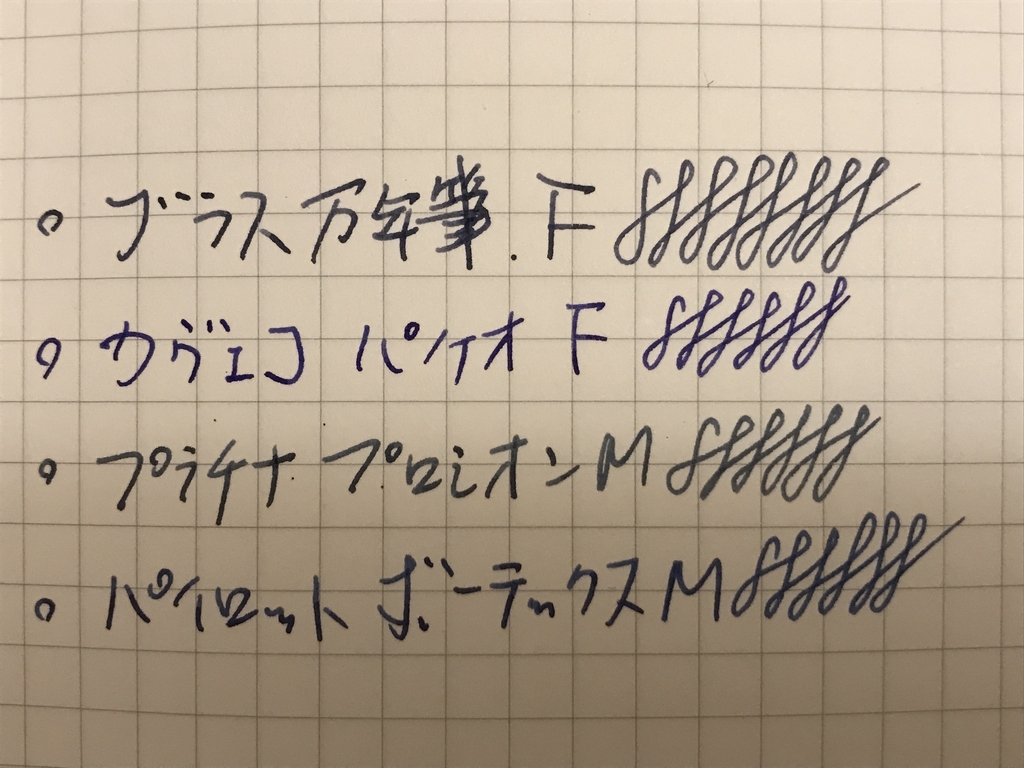 ○ ブラス万年筆. F
○ カヴェコ パケオ F
○ プラチナ プロシオン M
○ パイロット ボーテックス M